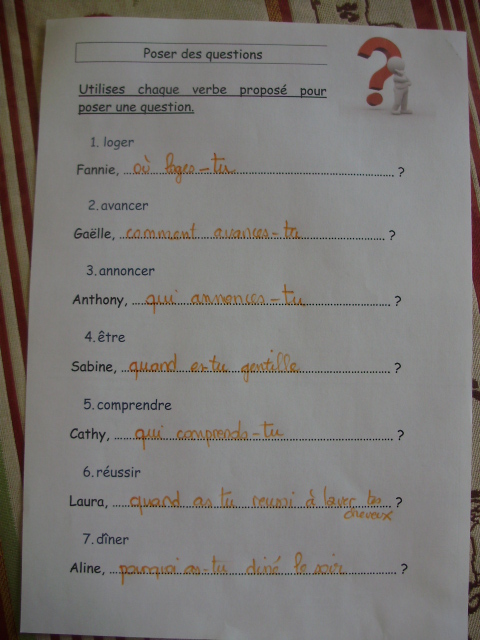 Poser des questions
Utilises chaque verbe proposé pour
poser une question.
1. loger
Fannie, où loges-tu ?
2. avancer
Gaëlle, comment avances-tu ?
3. annoncer
Anthony, qui annonces-tu ?
4. être
Sabine, quand es-tu gentille ?
5. comprendre
Cathy, qui comprends-tu ?
6. réussir
Laura, quand as tu reussi à laver tes ?
cheveux
7. dîner
Aline, pourquoi as-tu diné le soir ?